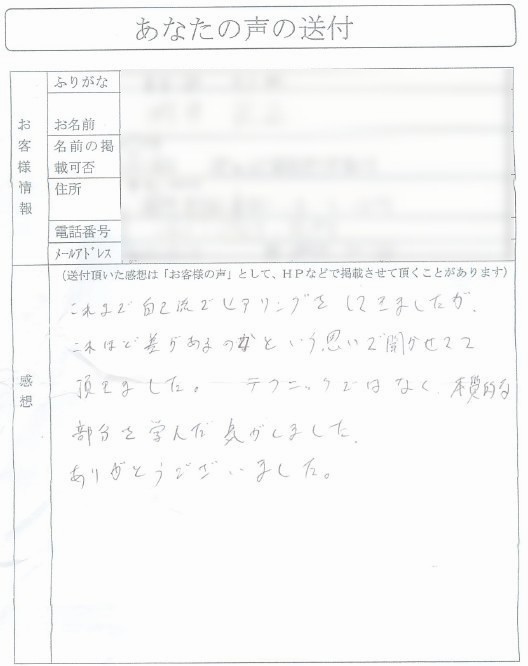 あなたの声の送付
ふりがな
お名前
名前の掲
載可否
住所
電話番号
メールアドレス
お客様情報
(送付頂いた感想は「お客様の声」として、HPなどで掲載させて頂くことがあります)
感想
これまで自己流でヒアリングをしてきましたが、
これほど差があるのかという思いで聞かせて
頂きました。 テクニックではなく、本質的な
部分を学んだ気がしました。
ありがとうございました。